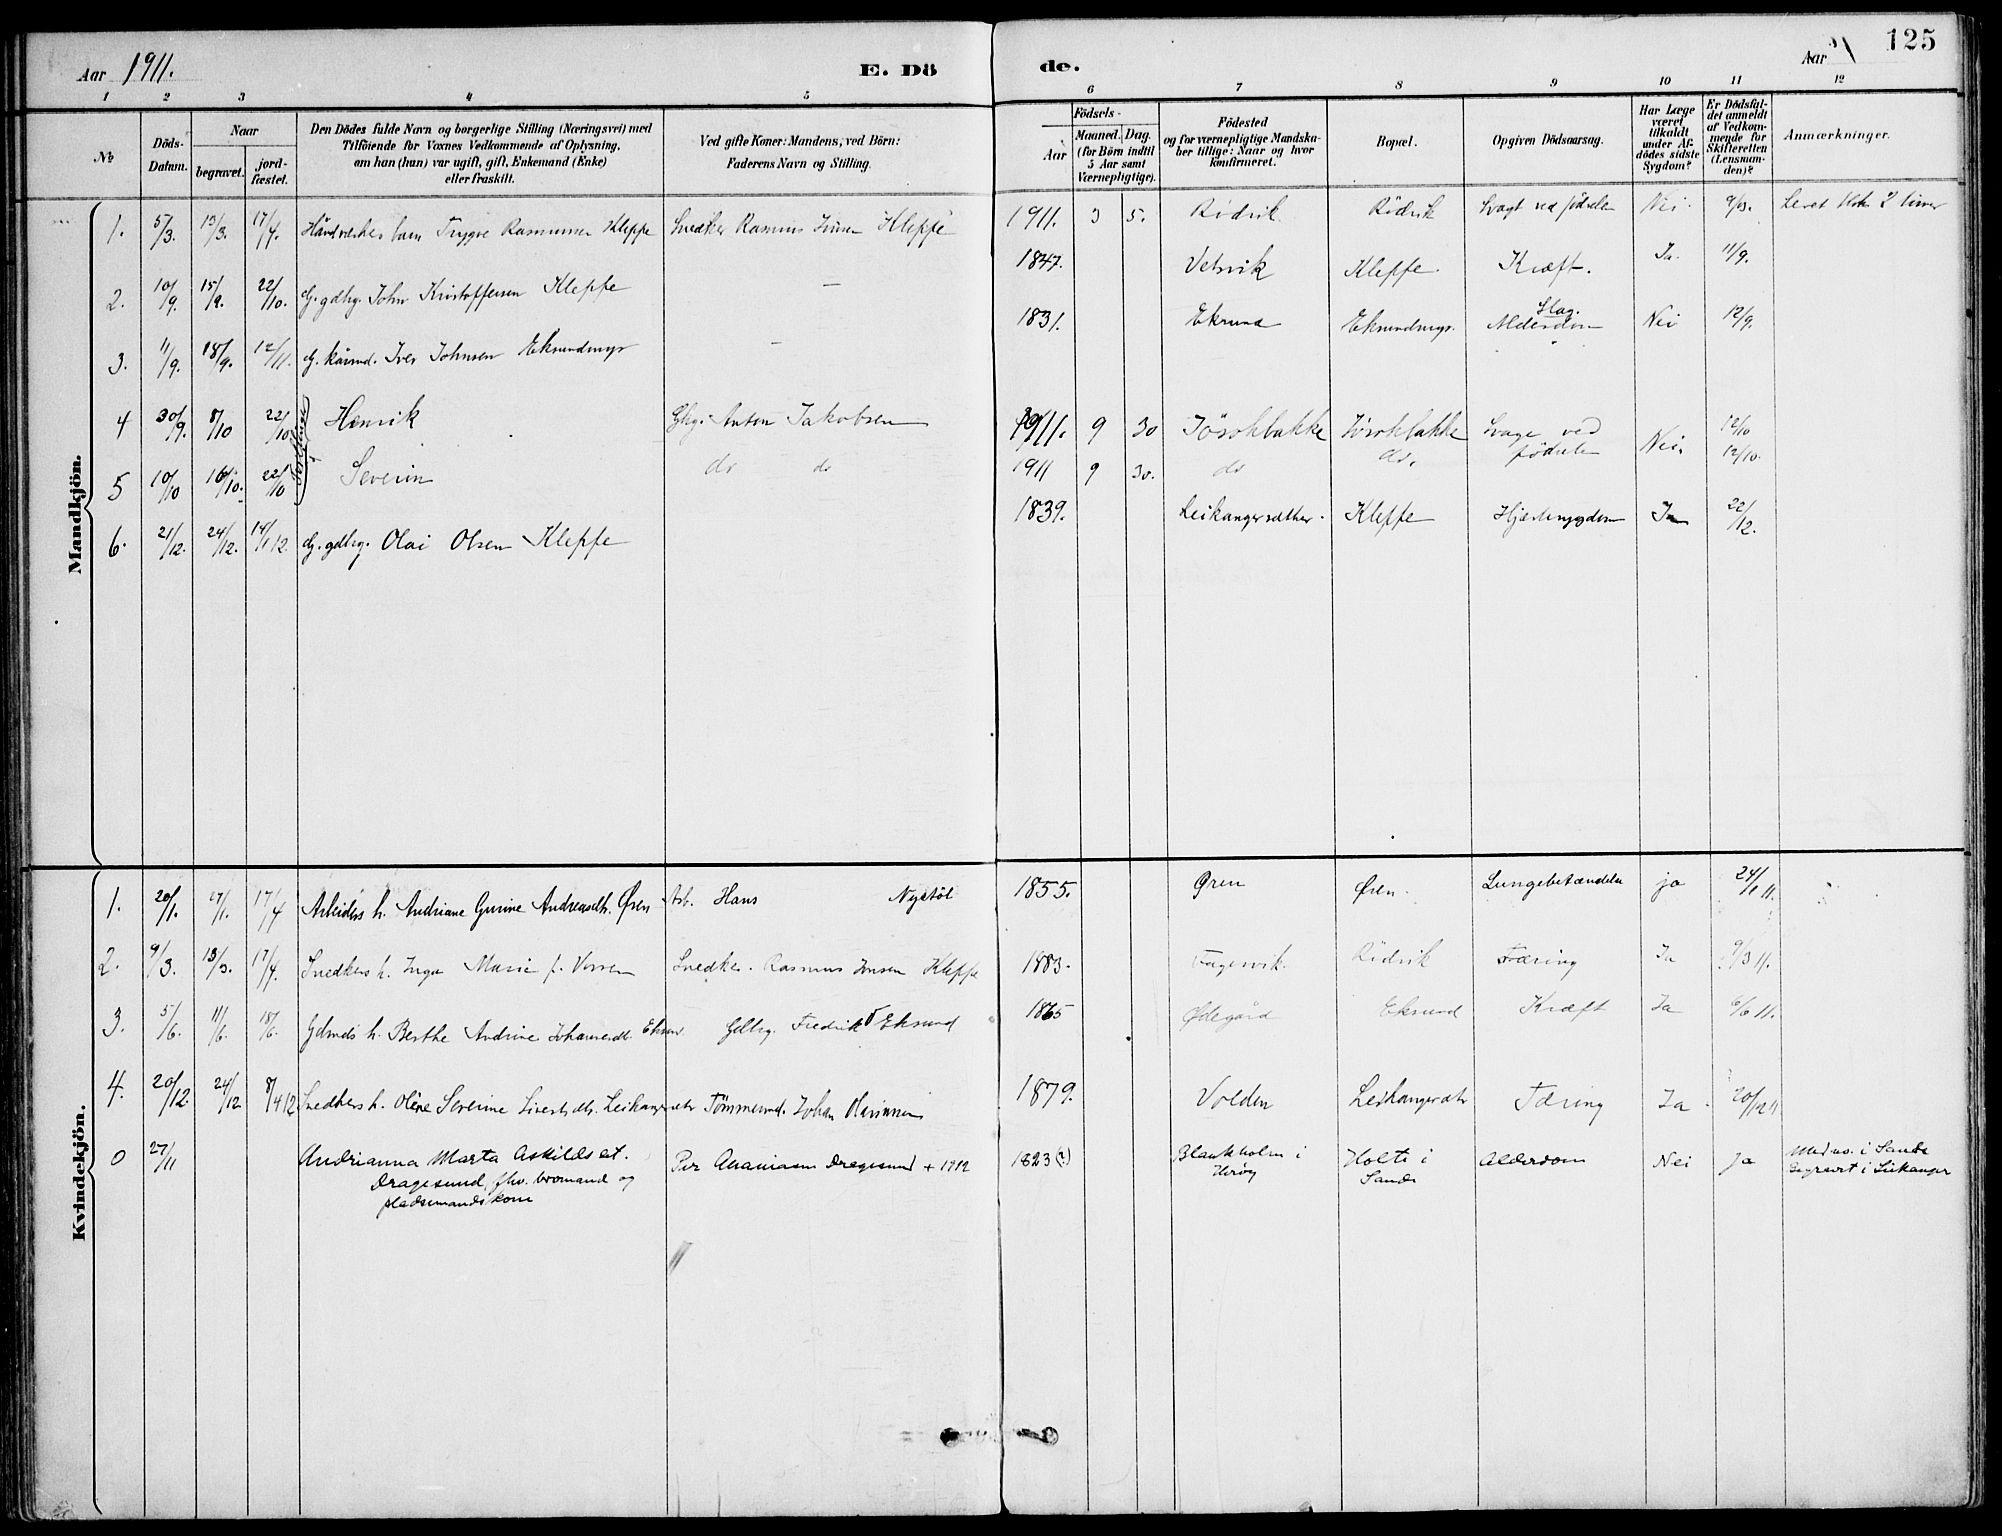 Aar 1911.
E. Dö
de.
Aar
125
1 2 3 4 5 6 7 8 9 10 11 12
№
Döds-
Datum.
Naar
begravet.
jord-
fæstet.
Den Dödes fulde Navn og borgerlige Stilling (Næringsvei) med
Tilföiende for Voxnes Vedkommende af Oplysning,
om han (hun) var ugift, gift, Enkemand (Enke)
eller fraskilt.
Ved gifte Koner: Mandens, ved Börn:
Faderens Navn og Stilling.
Födsels-
Aar
Maaned. Dag.
(for Börn indtil
5 Aar samt
Værnepligtige).
Födested
og for værnepligtige Mandska-
ber tillige: Naar og hvor
konfirmeret.
Bopæl.
Opgiven Dödsaarsag.
Har Læge
været
tilkaldt
under Af-
dödes sidste
Sygdom?
Er Dödsfal-
det anmeldt
af Vedkom-
mende for
Skifteretten
(Lensman-
den)?
Anmærkninger.
Mandkjön.
1. 5/3. 13/3. 17/4. Trygve Rasmussen Kleppe Snedker Rasmus Jonsen Kleppe 1911. 3 5. Rødvik Rødvik Svagt ved fødselen Nei. 9/3. Levet 2 timer
2. 10/9. 15/9. 22/10. G. gdbrg. John Kristoffersen Kleppe — 1847. Vetvik Kleppe. Kræft. Ja. 11/9.
3. 11/9. 18/9. 12/11. Iver Johnsen Eksundmyr — 1831. Eksund Eksundmyr. Slag. Alderdom Nei 12/9.
4 30/9. 8/10 22/10 Henrik Gbrg. Anton Jakobsen 1911. 9 30 Jøsokbakke Jøsokbakke Svage ved fødselen Nei. 12/10
5 10/10 16/10. 22/10 Severin do do 1911 9 30. do do. 12/10.
6. 21/12. 24/12. 14/1 12 G. gdbrg. Olai Olsen Kleppe 1839. Leikangersæther. Kleppe Hjertesygdom Ja 22/12.
Kvindekjön.
1. 20/1. 27/1. 17/4 Arbeiders h. Andriane Gurine Andreasdtr. Øren Arb. Hans Nystöl 1855. Øren Øren. Lungebetændelse ja 24/1 11.
2. 9/3. 13/3. 17/4. Snedkers h. Inga Marie f. Vorren Snedker. Rasmus Jonsen Kleppe 1883. Fagervik. Rødvik Tæring Ja 9/3 11.
3. 5/6. 11/6. 18/6. Gdmds h. Berthe Andrine Johannesdtr. Eksund Gdbrg. Fredrik Eksund 1865 Ødegård Eksund Kræft Ja 6/6 11.
4. 20/12. 24/12 8/4 12 Snedkers h. Oline Severine Sivertsdtr. Leikangersæter Tømmermd. Johan 1879. Volden Leikangersætr Tæring Ja. 20/12 11.
0 27/11 Andrianna Marta Askildsdt. Per Ananiasen Dragesund + 1912 1823 (?) Blankholm i Holti i Alderdom Nei Ja i Sande
Dragesund, fhv. bromand og Herøy Sande begravet i Leikanger
pladsemandskone